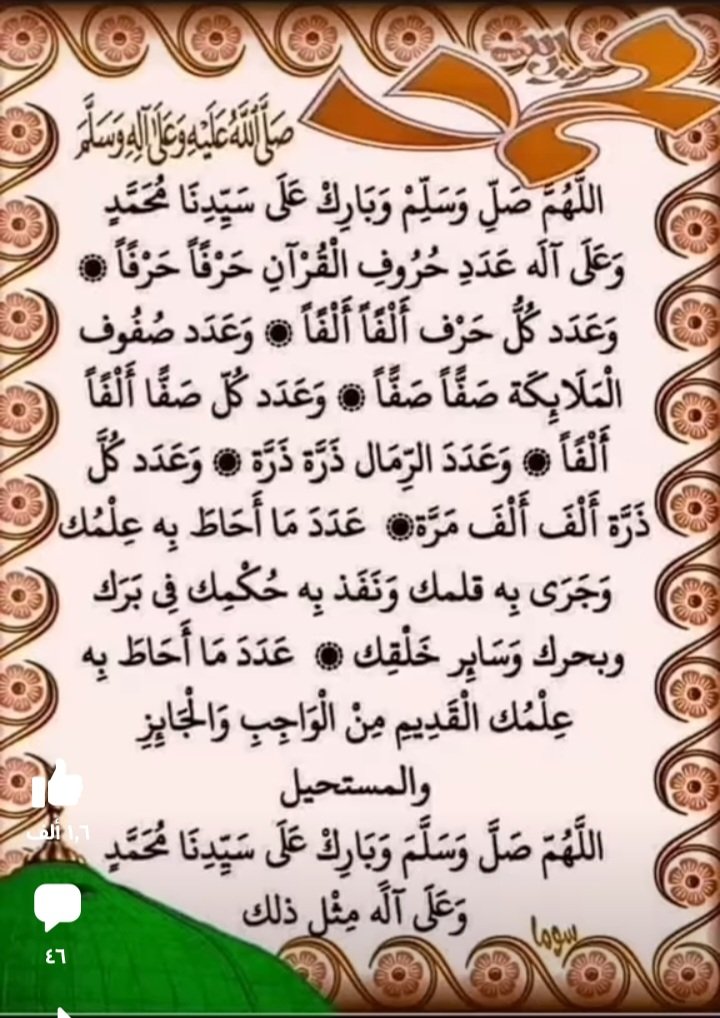 محمد
صَلَّى اللَّهُ عَلَيْهِ وَعَلَى آلِهِ وَسَلَّمَ
اللَّهُمَّ صَلِّ وَسَلِّمْ وَبَارِكْ عَلَى سَيِّدِنَا مُحَمَّدٍ
وَعَلَى آلَه عَدَدِ حُرُوفِ الْقُرْآنِ حَرْفًاً حَرْفًاً ۞
وَعَدَد كُلُّ حَرْف أَلْفًاً أَلْفًاً ۞ وَعَدَد صُفُوف
الْمَلَائِكَة صَفًّاً صَفًّاً ۞ وَعَدَد كُلّ صَفًّا أَلْفًاً
أَلْفًاً ۞ وَعَدَدَ الرِّمَال ذَرَّة ذَرَّة ۞ وَعَدَد كُلَّ
ذَرَّة أَلْفَ أَلْفَ مَرَّة۞ عَدَدَ مَا أَحَاطَ بِه عِلْمُك
وَجَرَى بِه قلمك وَنَفَذ بِه حُكْمِك فِي بَرَك
وبحرك وَسَايِر خَلْقِك ۞ عَدَدَ مَا أَحَاطَ بِه
عِلْمُك الْقَدِيمِ مِنْ الْوَاجِبِ وَالْجَايِزِ
والمستحيل
اللَّهُمّ صَلَّ وَسَلَّمَ وَبَارِكْ عَلَى سَيِّدِنَا مُحَمَّدٍ
وَعَلَى آلَه مِثْل ذلك
سوما
١,٦ ألف
٤٦